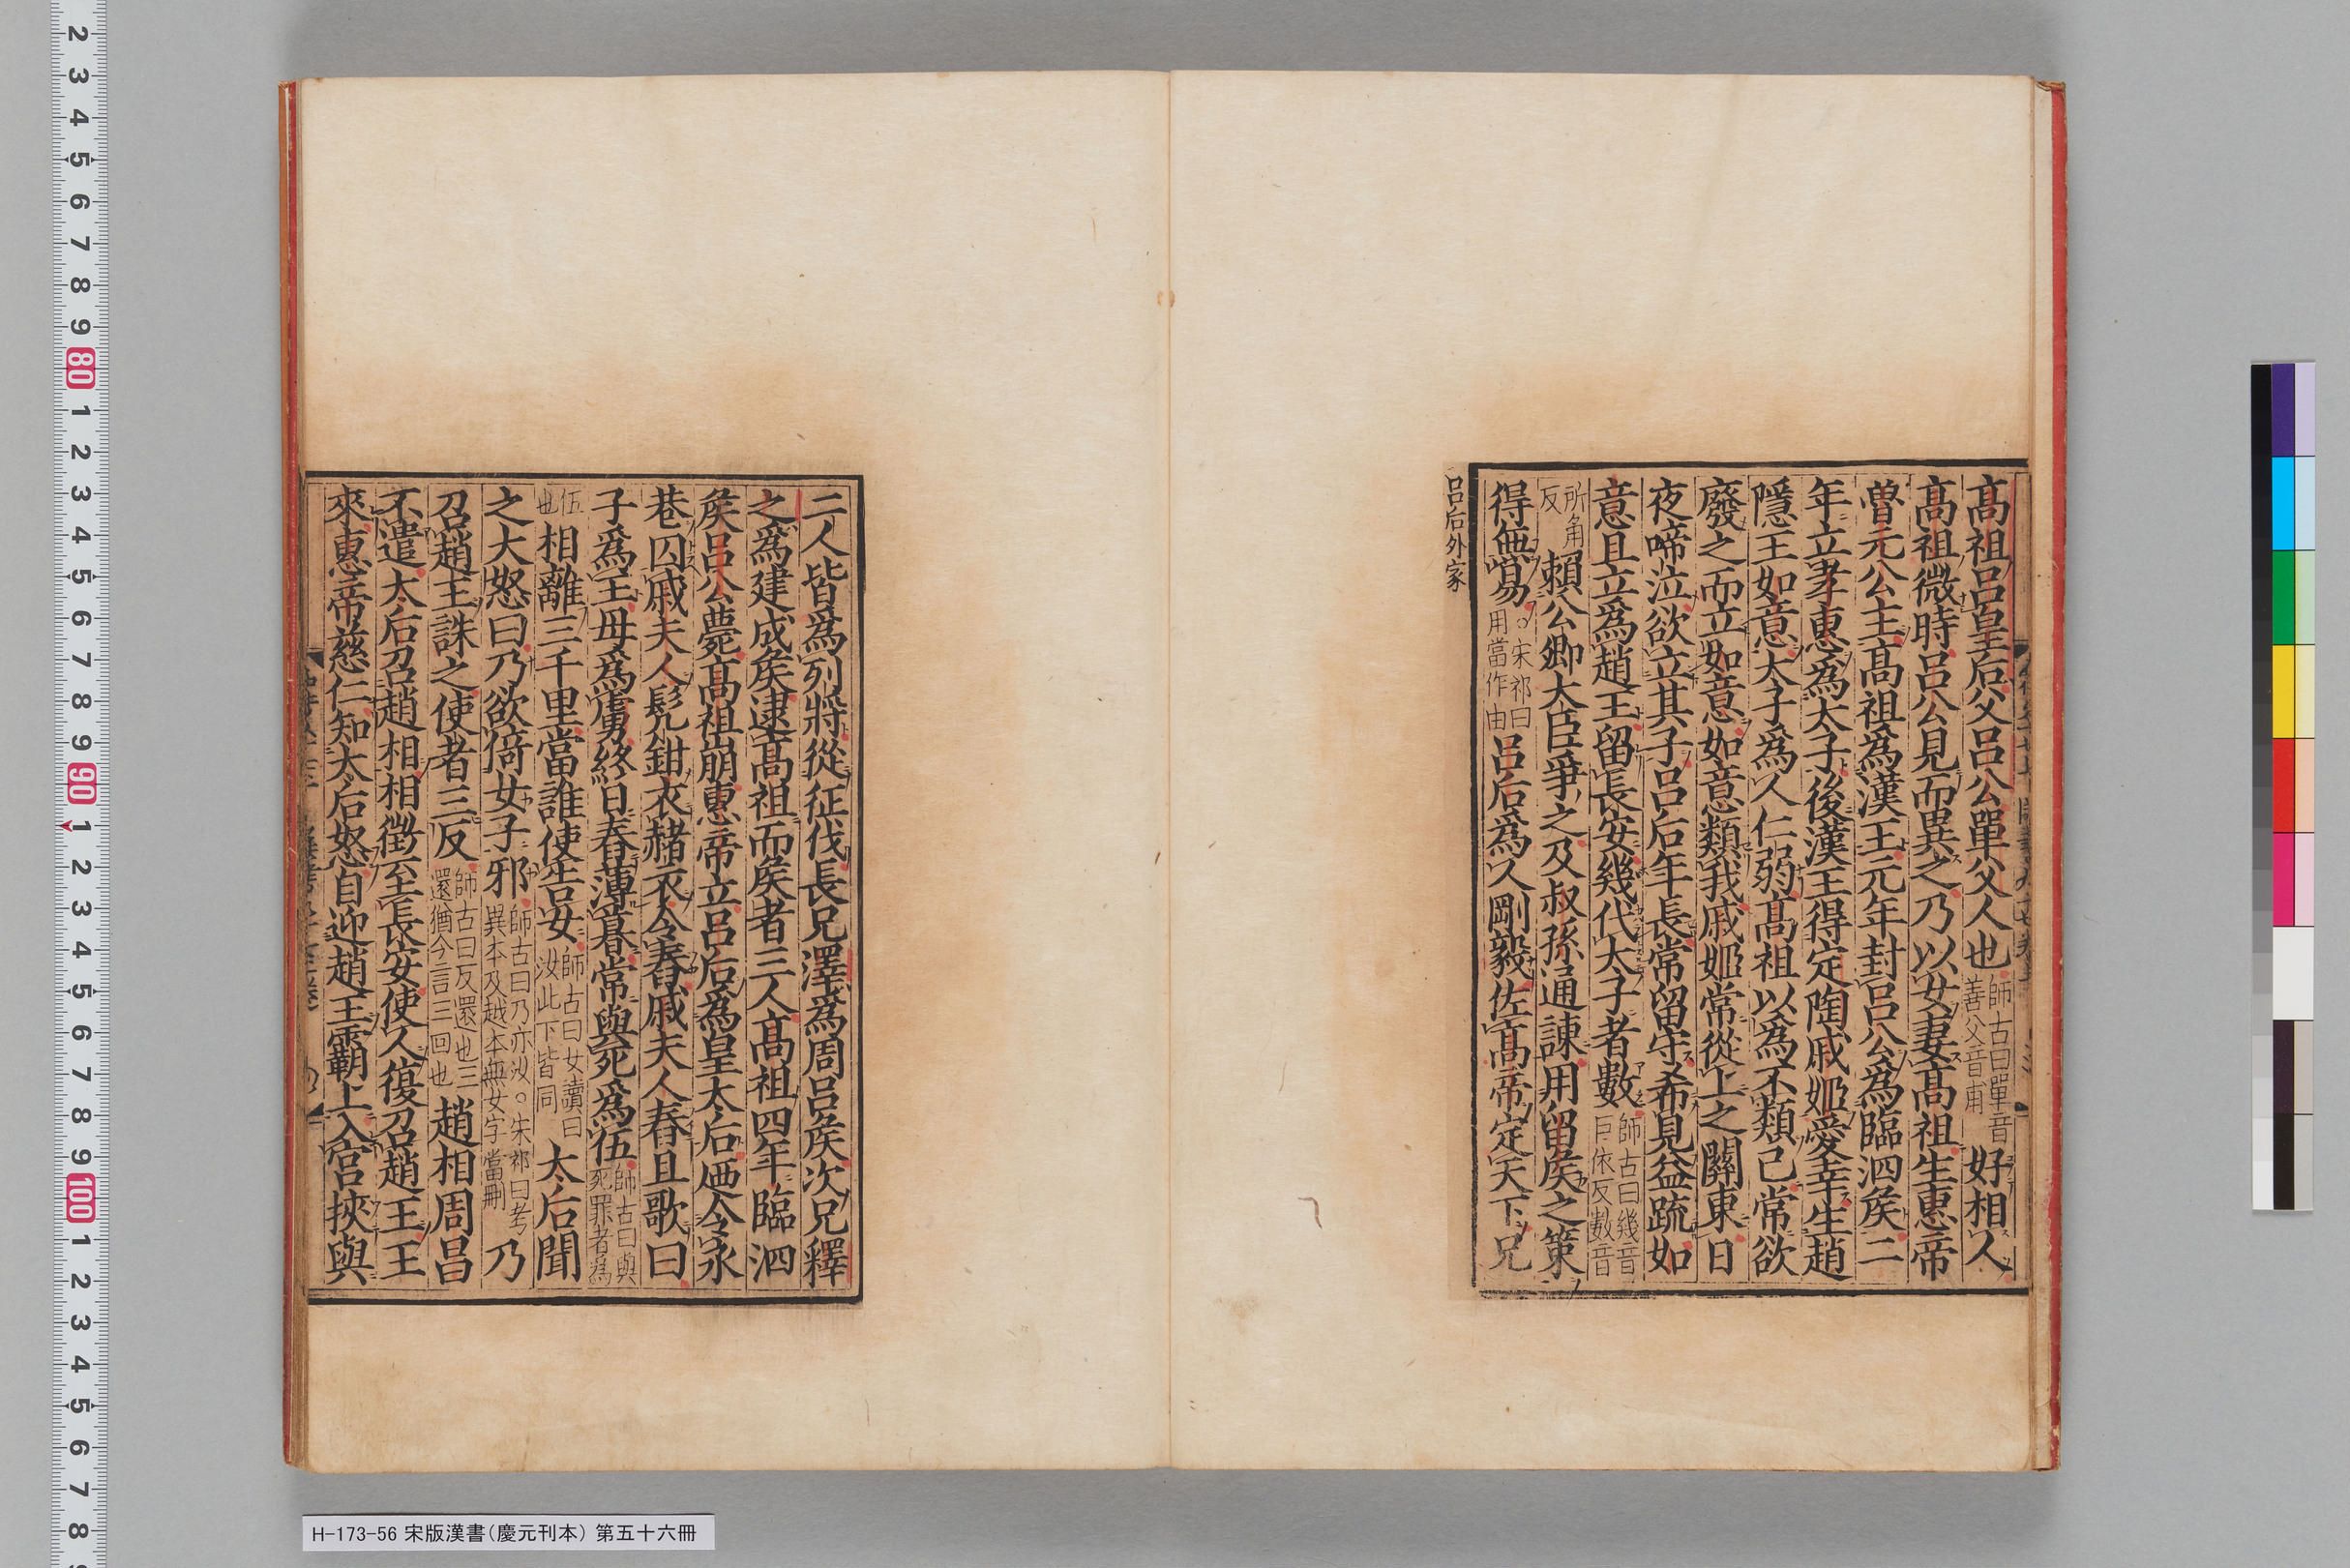 高祖呂皇后父呂公單父人也師古曰單音善父音甫好相人
高祖微時呂公見而異之乃以女妻高祖生惠帝
魯元公主高祖為漢王元年封呂公為臨泗矦二
年立孝惠為太子後漢王得定陶戚姬愛幸生趙
隱王如意太子為人仁弱高祖以為不類己常欲
廢之而立如意如意類我戚姬常從上之關東日
夜啼泣欲立其子呂后年長常留守希見益疏如
意且立為趙王留長安幾代太子者數師古曰幾音巨依反數音
所角反賴公卿大臣爭之及叔孫通諫用留矦之策
得無易。宋祁曰用當作由呂后爲人剛毅佐高帝定天下兄
呂后外家
二人皆爲列將從征伐長兄澤爲周呂矦次兄釋
之爲建成矦逮高祖而矦者三人高祖四年臨泗
矦呂公薨高祖崩惠帝立呂后爲皇太后廼令永
巷囚戚夫人髡鉗衣赭衣令舂戚夫人舂且歌曰
子爲王母爲虜終日舂薄暮常與死爲伍師古曰與死罪者爲
伍也相離三千里當誰使告女師古曰女讀曰汝此下皆同太后聞
之大怒曰乃欲倚女子邪師古曰乃亦汝。宋祁曰考異本及越本無女字當刪乃
召趙王誅之使者三反師古曰反還也三還猶今言三回也趙相周昌
不遣太后召趙相相徵至長安使人復召趙王王
來惠帝慈仁知太后怒自迎趙王霸上入宮挾與
H-173-56 宋版漢書（慶元刊本） 第五十六冊
2 3 4 5 6 7 8 9 80 1 2 3 4 5 6 7 8 9 90 1 2 3 4 5 6 7 8 9 100 1 2 3 4 5 6 7 8